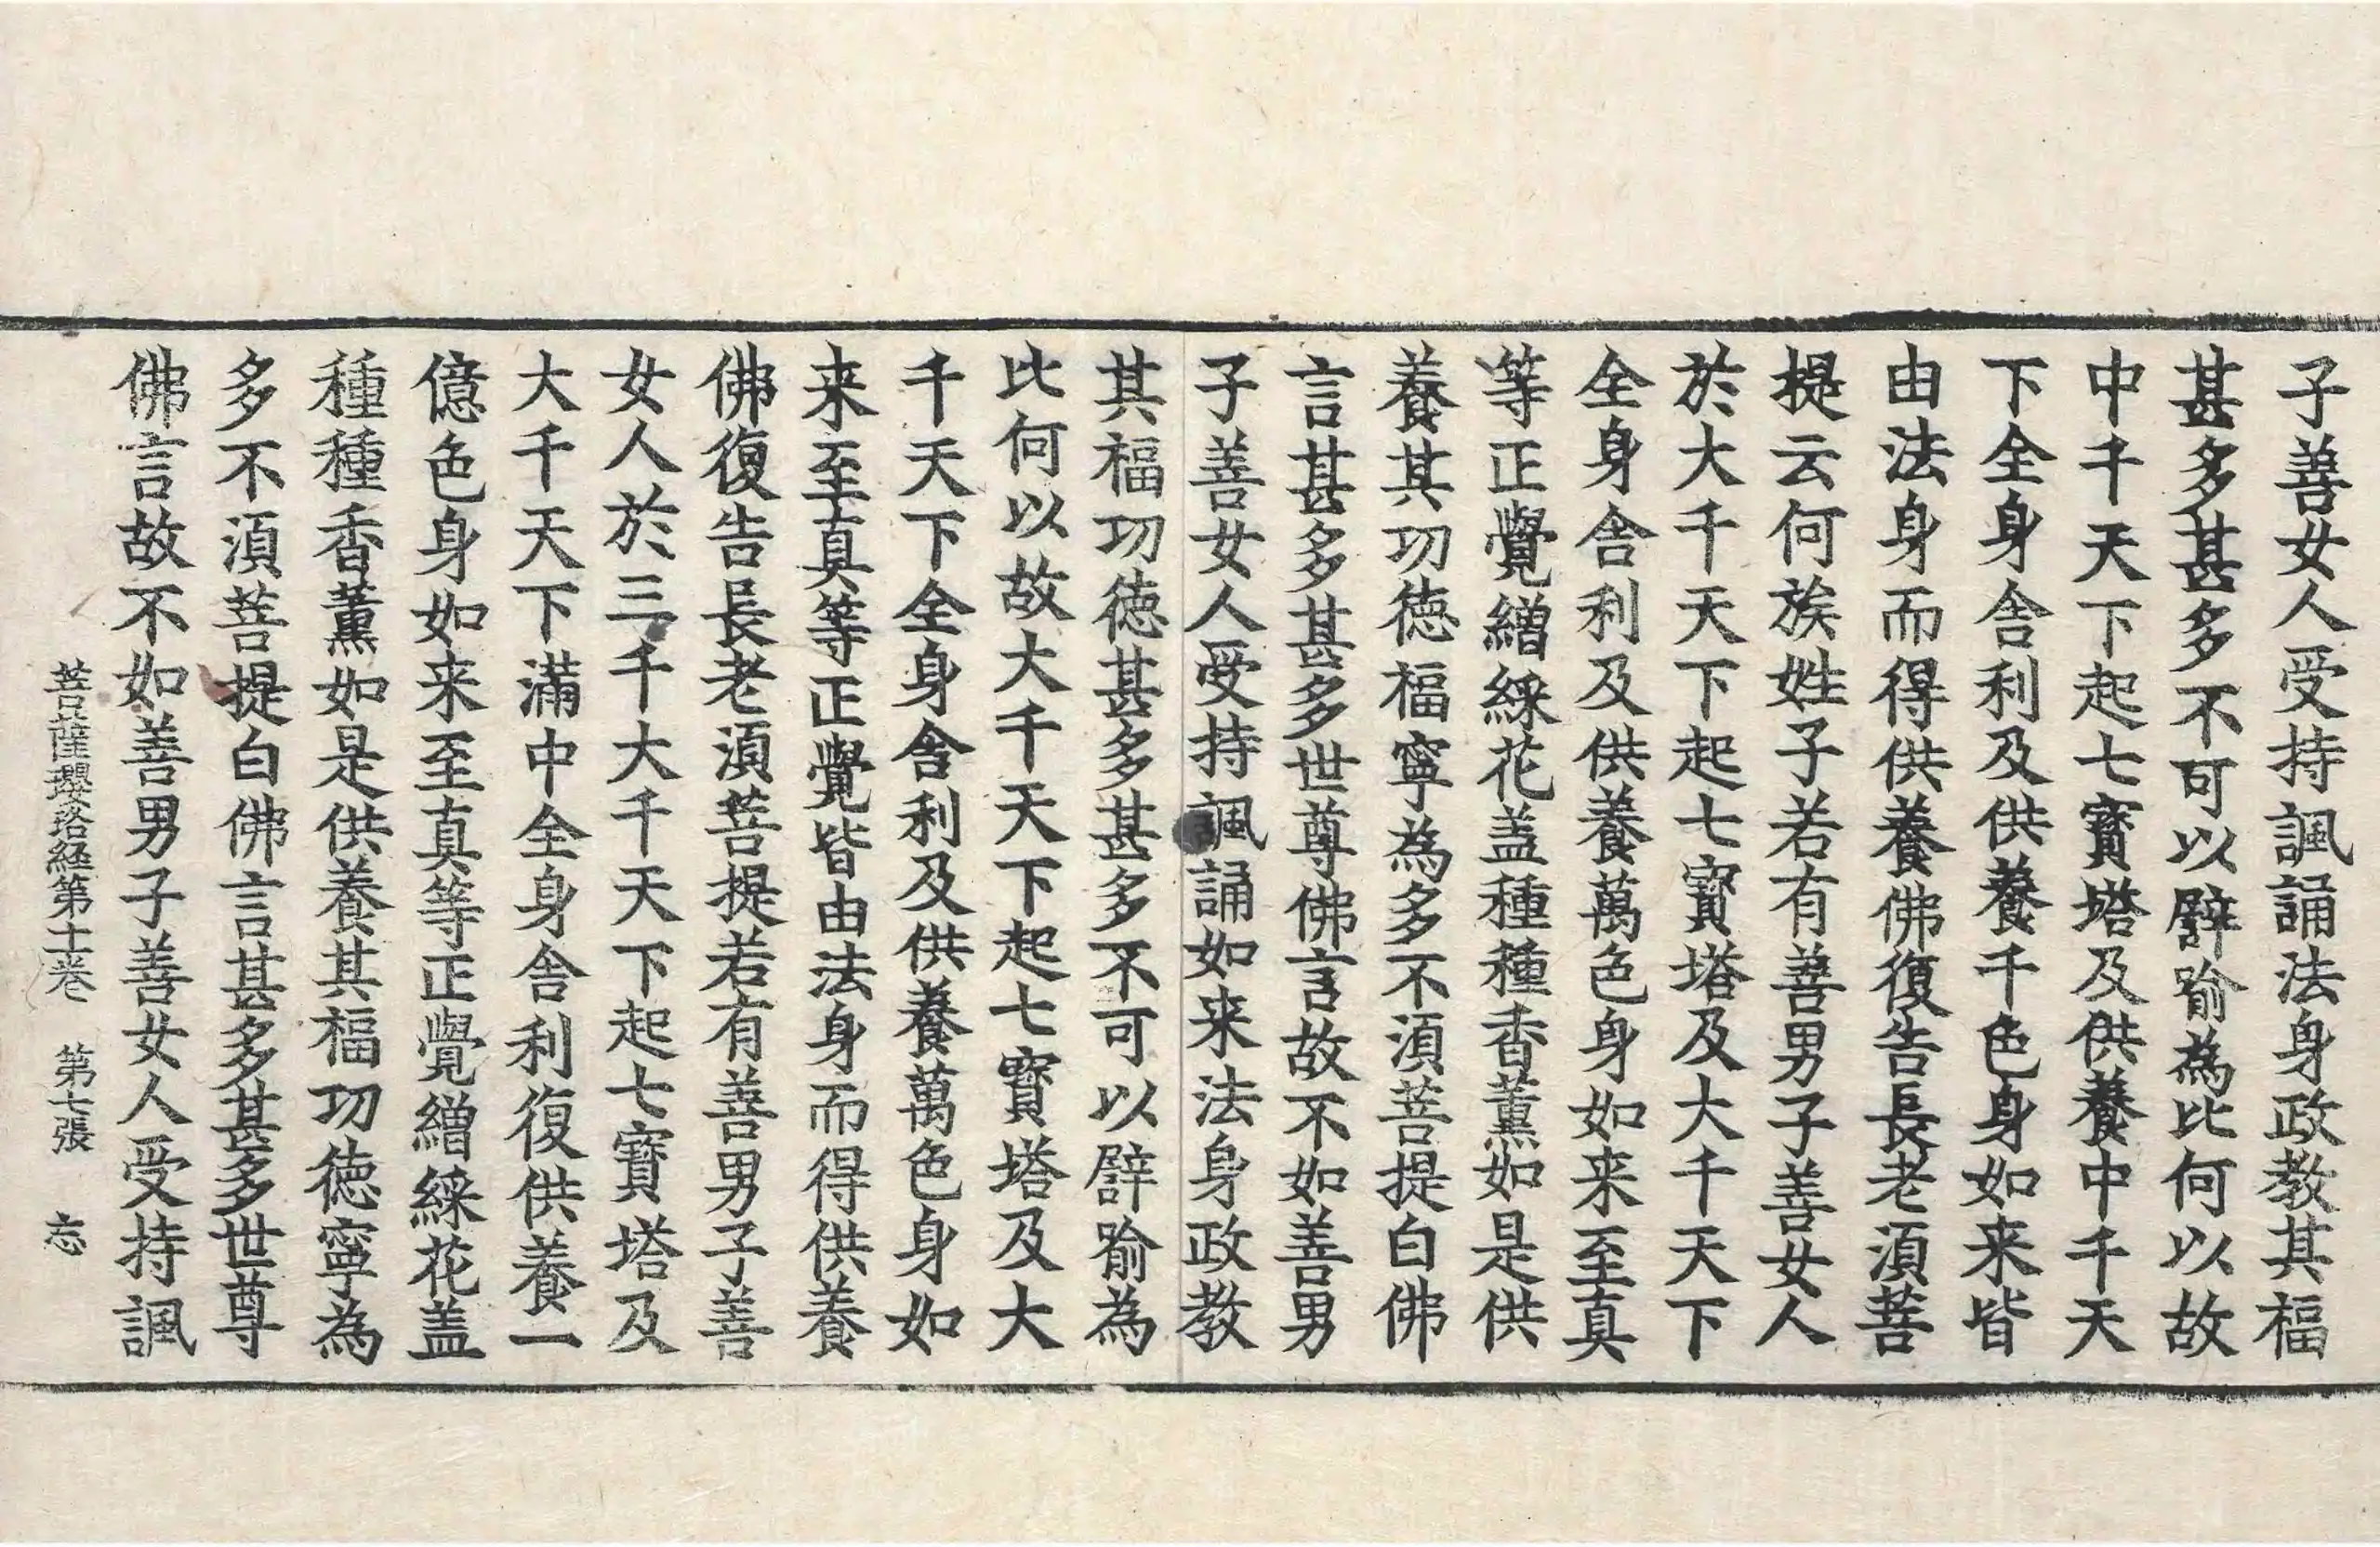 子善女人受持諷誦法身政教其福
甚多甚多不可以譬喻為比何以故
中千天下起七寶塔及供養中千天
下全身舎利及供養千色身如来皆
由法身而得供養佛復告長老湏菩
提云何族姓子若有善男子善女人
於大千天下起七寶塔及大千天下
全身舎利及供養萬色身如来至真
等正覺繒綵花盖種種香薰如是供
養其功徳福寧為多不湏菩提白佛
言甚多甚多世尊佛言故不如善男
子善女人受持諷誦如来法身政教
其福功徳甚多甚多不可以譬喻為
比何以故大千天下起七寶塔及大
千天下全身舎利及供養萬色身如
来至真等正覺皆由法身而得供養
佛復告長老湏菩提若有善男子善
女人於三千大千天下起七寶塔及
大千天下滿中全身舎利復供養一
億色身如来至真等正覺繒綵花盖
種種香薰如是供養其福功徳寧為
多不湏菩提白佛言甚多甚多世尊
佛言故不如善男子善女人受持諷
菩薩瓔珞経第十一巻 第七張 忘